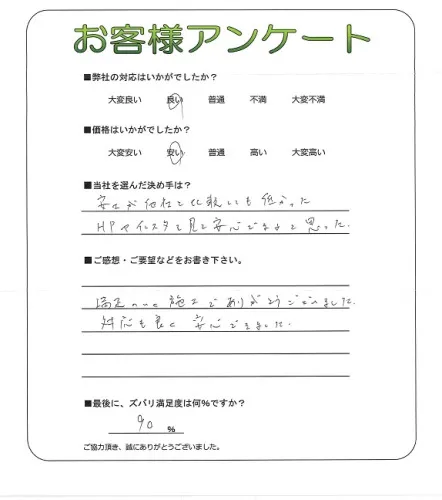 お客様アンケート
■弊社の対応はいかがでしたか？
大変良い 良い 普通 不満 大変不満
■価格はいかがでしたか？
大変安い 安い 普通 高い 大変高い
■当社を選んだ決め手は？
が他社と比較しても低かった
HPやインスタを見て安心できると思った.
■ご感想・ご要望などをお書き下さい。
施工でありがとうございました.
対応も良く安心できました.
■最後に、ズバリ満足度は何%ですか？
90 %
ご協力頂き、誠にありがとうございました。